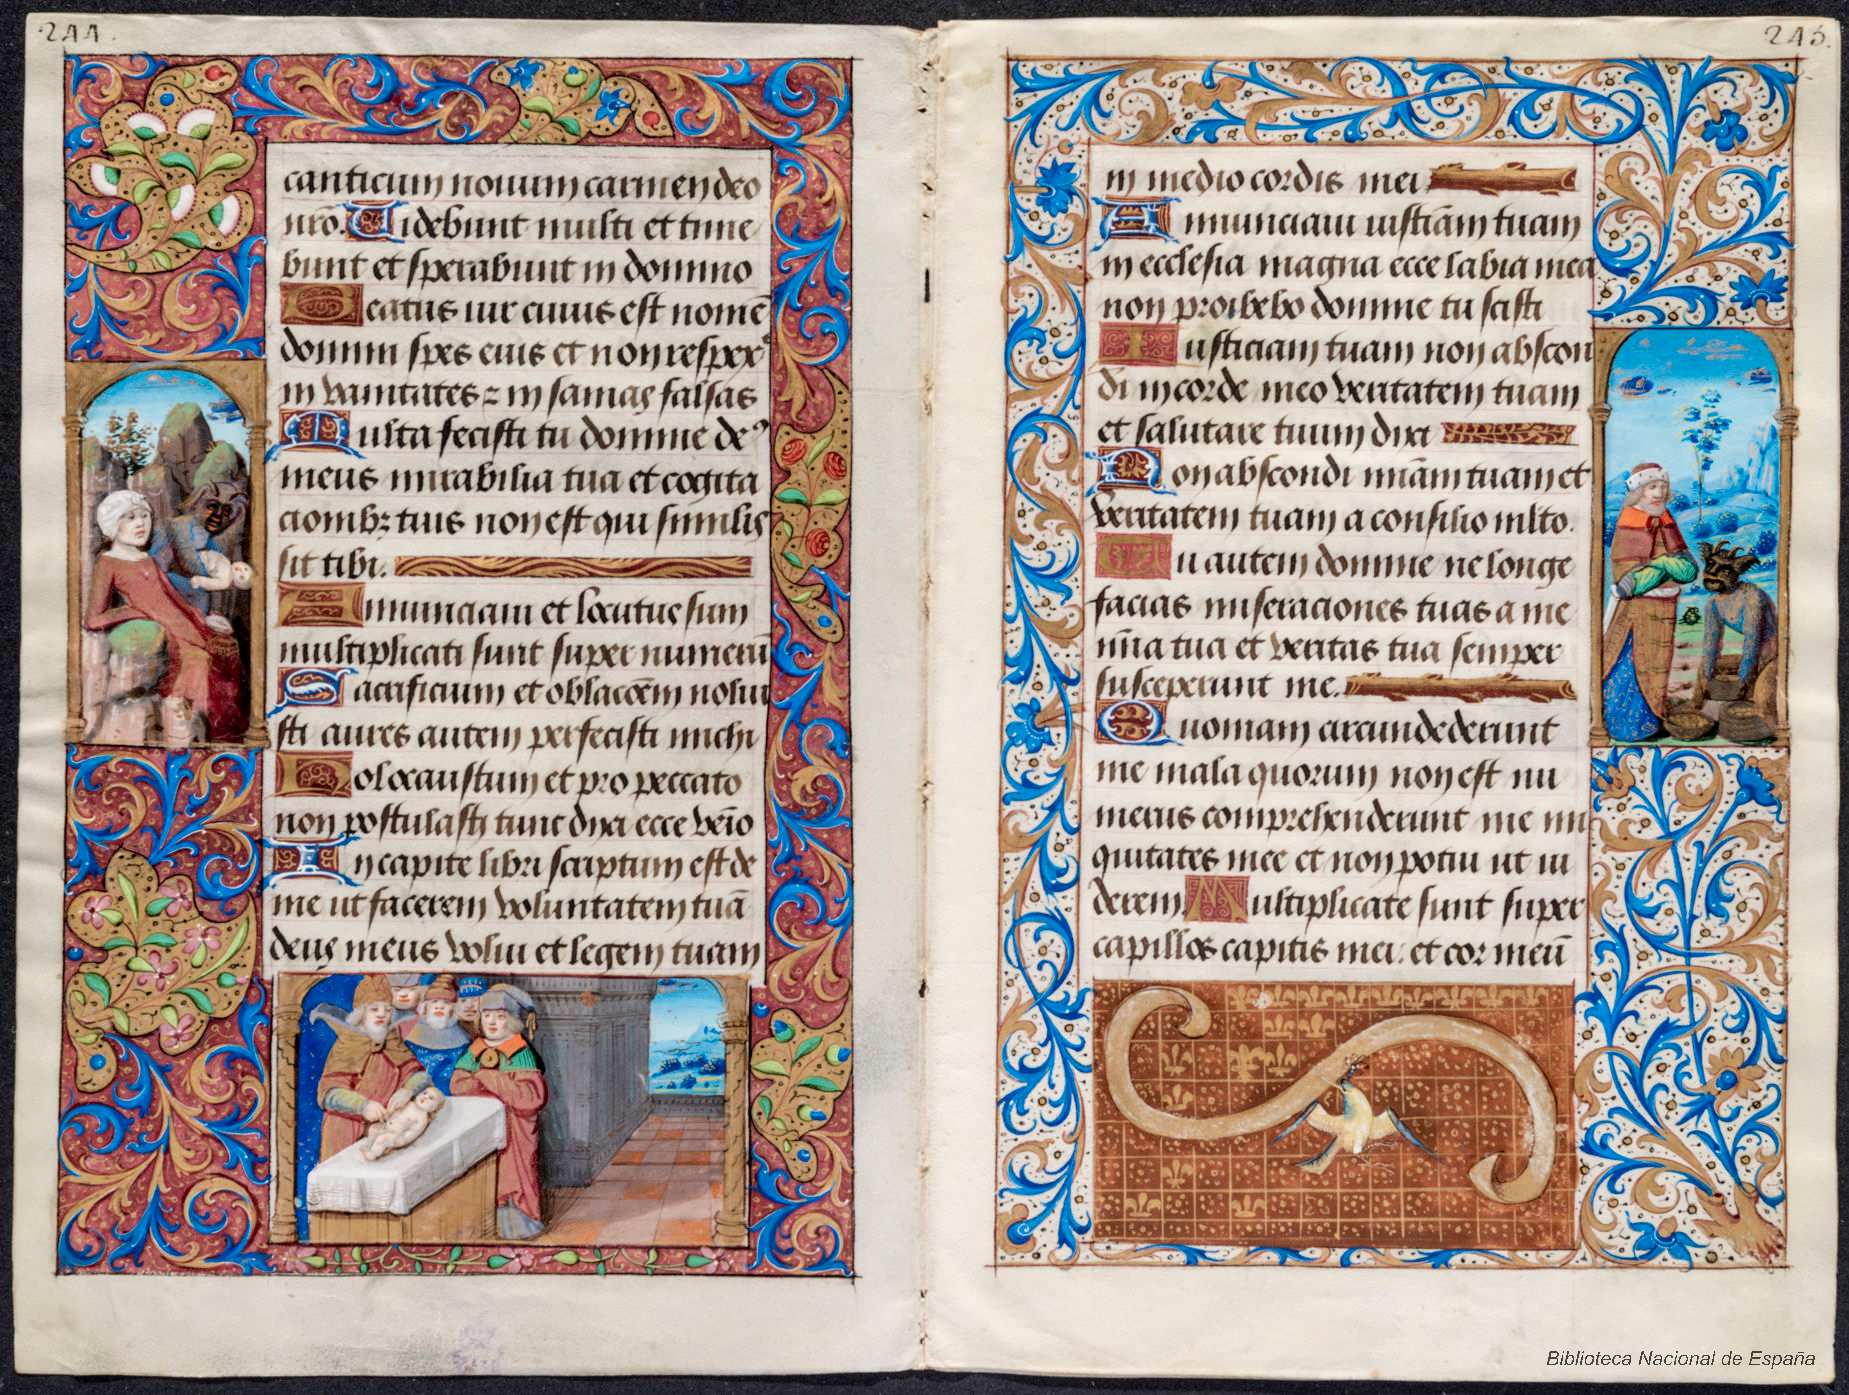 244.
canticum nouum carmen deo
nr̄o. Uidebunt multi et time
bunt et sperabunt in domino
Beatus uir cuius est nomē
domini spes eius et non respex
in vanitates ⁊ in sanias falsas
Multa fecisti tu domine de
meus mirabilia tua et cogita
cionibꝫ tuis non est qui similis
sit tibi.
Annunciaui et locutus sum
multiplicati sunt super numerū
Sacrificium et oblacōem nolui
sti aures autem perfecisti michi
Holocaustum et pro peccato
non postulasti tunc dixi ecce veīo
In capite libri scriptum est de
me ut facerem voluntatem tuā
deus meus volui et legem tuam
245.
in medio cordis mei
Annunciaui iusticiā̄m tuam
in ecclesia magna ecce labia mea
non proibebo domine tu scisti
Iusticiam tuam non abscon
di in corde meo veritatem tuam
et salutare tuum dixi
Non abscondi mīam tuam et
veritatem tuam a consilio mlto.
Tu autem domine ne longe
facias miseraciones tuas a me
mīa tua et veritas tua semper
susceperunt me.
Quoniam circundederunt
me mala quorum non est nu
merus comprehenderunt me ini
quitates mee et non potui ut ui
derem. Multiplicate sunt super
capillos capitis mei: et cor meū
Biblioteca Nacional de España